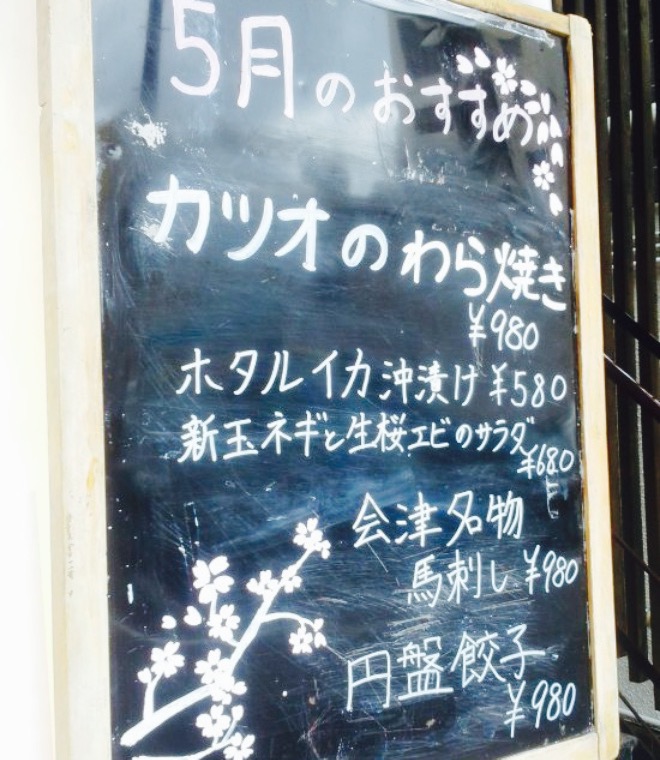 5月のおすすめ
カツオのわら焼き
¥980
ホタルイカ沖漬け ¥580
新玉ネギと生桜エビのサラダ
¥680
会津名物
馬刺し ¥980
円盤餃子
¥980